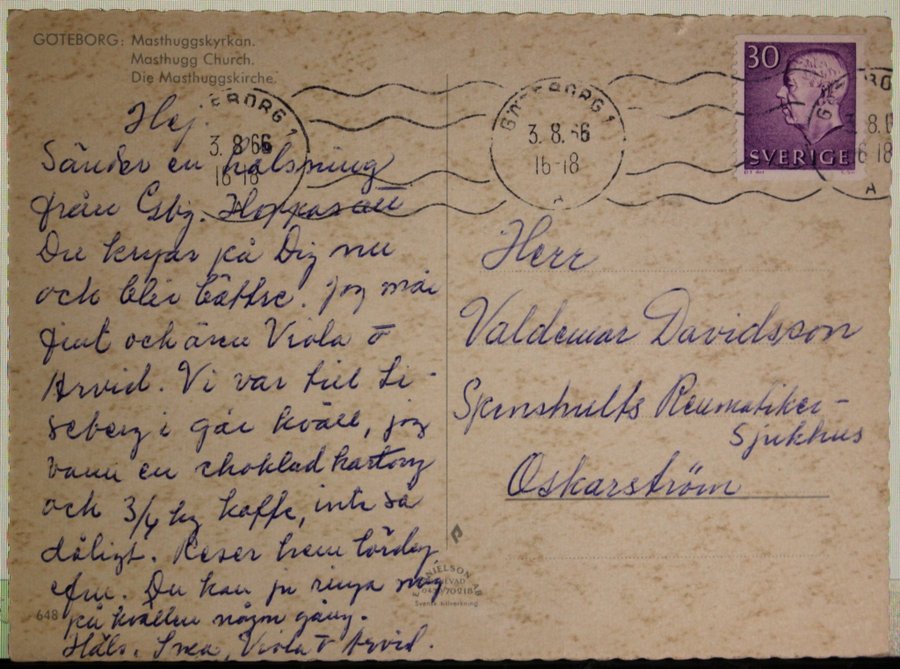 GÖTEBORG: Masthuggskyrkan.
Masthugg Church.
Die Masthuggskirche.
Hej.
Sänder en hälsning
från Gbg. Hoppas att
Du kryar på Dig nu
och blir bättre. Jag mår
fint och även Viola o
Arvid. Vi var till Li-
seberg i går kväll, jag
vann en chokladkartong
och 3/4 kg kaffe, inte så
dåligt. Reser hem lördag
efm. Du kan ju ringa mig
på kvällen någon gång.
Häls. Svea, Viola o Arvid.
648
GÖTEBORG 1
3. 8. 66
16-18
A
30
SVERIGE
Herr
Valdemar Davidsson
Spenshults Reumatiker-
Sjukhus
Oskarström
NIELSON AB
Svensk tillverkning